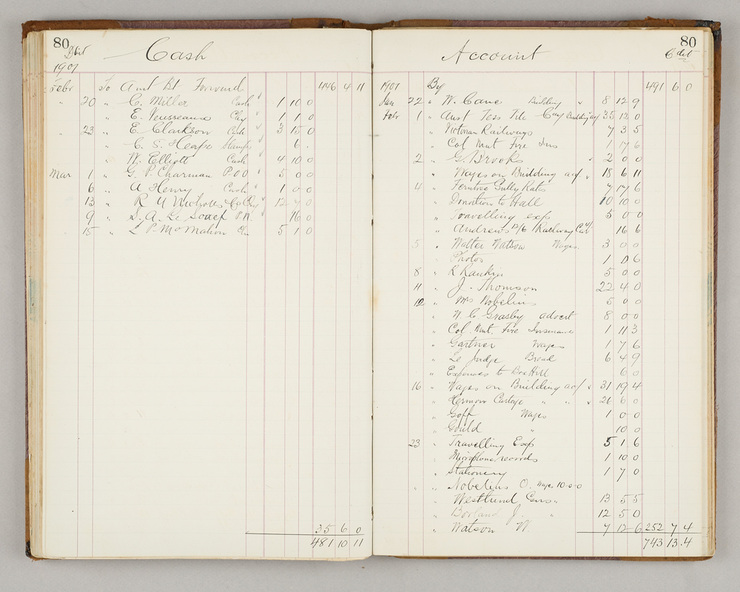 80
Cash
1901
Febr To Amt Bt Forward 446 4 11
20 " C. Miller Cash 1 10 0
" E. Chq 1 1 0
23 " E Clarkson Cash 3 15 0
" C. S. 6
" W. Elliott Cash 4 10 0
Mar 1 " G. P. Charman P.O.O 5 0 0
6 " A Henry Cash 1 0 0
13 " R U Nicholls
9 " 16 0
15 " L P McMahon 5 1 0
35 6 0
481 10 11
80
Account
1901 By 491 6 0
Jan 22 " W. Cane Building " 8 12 9
Febr 1 " Aust Tess Tile Coy 35 12 0
" Victorian Railways 7 3 5
" Col Mut Fire Ins 1 17 6
2 " G. Brooks " 2 0 0
" Wages on Building a/c " 18 6 11
4 " Ferntree Gully Rates 7 17 6
" Donations to Hall 10 10 0
" Travelling exp 5 0 0
" Andrews 16 6
5 " Walter Watson Wages 3 0 0
" Photos 1 6
8 " R 5 0 0
11 " J. Thomson 22 4 0
12 " Mrs Nobelius 5 0 0
" W. C. Grasby advert 8 0 0
" Col Mut Fire Insurance 1 11 3
" Gartner Wages 1 7 6
" Le Judge Bread 6 4 9
" Expenses to 6 0
16 " Wages on Building a/c " 31 19 4
" Hermon Cartage " " " 26 6 0
" Goff Wages 1 0 0
" Gould " 10 0
23 " Travelling Exp 5 1 6
" records 1 10 0
" Stationery 1 7 0
" Nobelius O. Wages 10.0.0
" Westlund 13 5 5
" J " 12 5 0
" Watson W 7 12 6 252 7 4
743 13 4